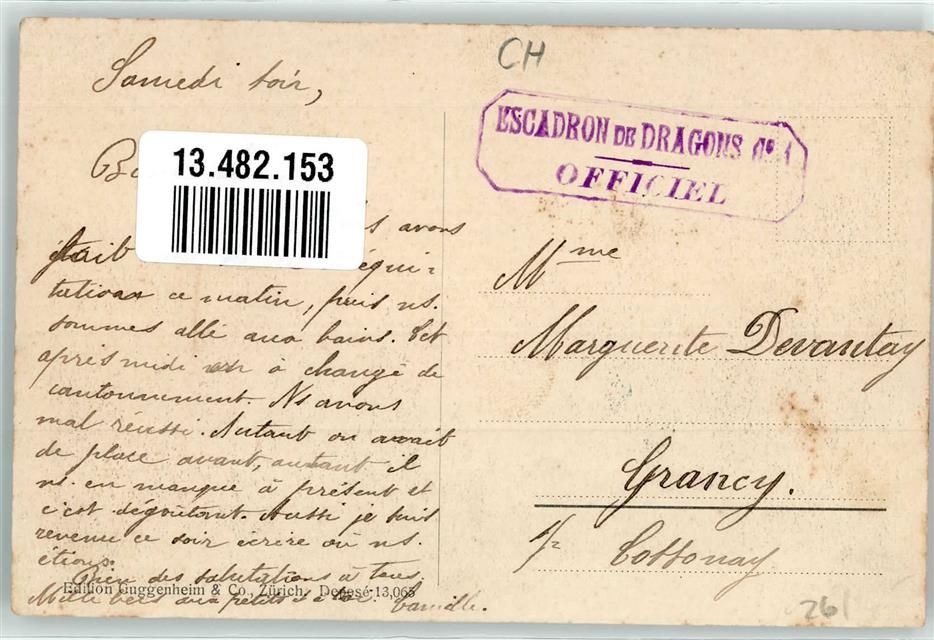 CH
Samedi soir,
ESCADRON DE DRAGONS No 1
OFFICIEL
13.482.153
avons
fait équi-
tation ce matin, puis ns.
sommes allé aux bains. Cet
après midi à changé de
cantonnement. Ns avons
mal réussi. Autant on avait
de place avant, autant il
ns. en manque à présent et
c'est dégoutant. Aussi je suis
revenu ce soir écrire où ns.
étions.
Bien des salutations à tous,
Mille bers aux petits Camille.
Edition Guggenheim & Co., Zürich. Deposé 13,065
Mme
Marguerite Devantay
Grancy.
s/
Cossonay
26